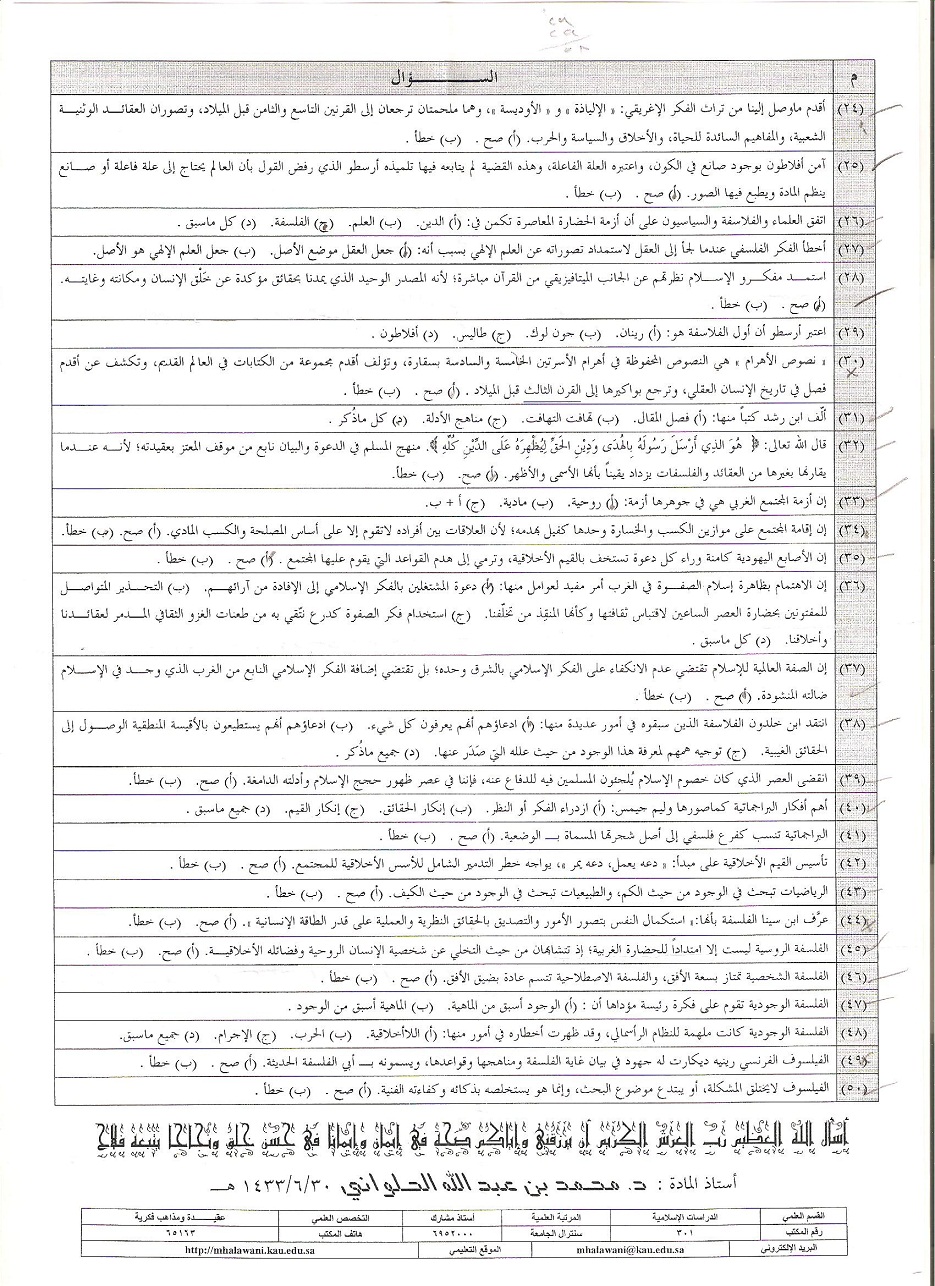 ٢٩
٢٩
٥٨
م السـؤال
(٢٤) أقدم ماوصل إلينا من تراث الفكر الإغريقي: «الإلياذة» و «الأوديسة»، وهما ملحمتان ترجعان إلى القرنين التاسع والثامن قبل الميلاد، وتصوران العقائد الوثنية
الشعبية، والمفاهيم السائدة للحياة، والأخلاق والسياسة والحرب. (أ) صح . (ب) خطأ .
(٢٥) آمن أفلاطون بوجود صانع في الكون، واعتبره العلة الفاعلة، وهذه القضية لم يتابعه فيها تلميذه أرسطو الذي رفض القول بأن العالم يحتاج إلى علة فاعلة أو صانع
ينظم المادة ويطبع فيها الصور. (أ) صح . (ب) خطأ .
(٢٦) اتفق العلماء والفلاسفة والسياسيون على أن أزمة الحضارة المعاصرة تكمن في: (أ) الدين. (ب) العلم. (ج) الفلسفة. (د) كل ماسبق .
(٢٧) أخطأ الفكر الفلسفي عندما لجأ إلى العقل لاستمداد تصوراته عن العلم الإلهي بسبب أنه: (أ) جعل العقل موضع الأصل. (ب) جعل العلم الإلهي هو الأصل.
(٢٨) استمد مفكرو الإسلام نظرتهم عن الجانب الميتافيزيقي من القرآن مباشرة؛ لأنه المصدر الوحيد الذي يمدنا بحقائق مؤكدة عن خَلْق الإنسان ومكانته وغايته.
(أ) صح . (ب) خطأ .
(٢٩) اعتبر أرسطو أن أول الفلاسفة هو: (أ) رينان. (ب) جون لوك. (ج) طاليس. (د) أفلاطون .
(٣٠) « نصوص الأهرام » هي النصوص المحفوظة في أهرام الأسرتين الخامسة والسادسة بسقارة، وتؤلف أقدم مجموعة من الكتابات في العالم القديم، وتكشف عن أقدم
فصل في تاريخ الإنسان العقلي، وترجع بواكيرها إلى القرن الثالث قبل الميلاد . (أ) صح . (ب) خطأ .
(٣١) ألّف ابن رشد كتباً منها: (أ) فصل المقال. (ب) تهافت التهافت. (ج) مناهج الأدلة. (د) كل ماذُكر .
(٣٢) قال الله تعالى: ﴿ هُوَ الَّذِي أَرْسَلَ رَسُولَهُ بِالْهُدَى وَدِيْنِ الحَقِّ لِيُظْهِرَهُ عَلَى الدِّيْنِ كُلِّهِ ﴾. منهج المسلم في الدعوة والبيان نابع من موقف المعتز بعقيدته؛ لأنه عندما
يقارنها بغيرها من العقائد والفلسفات يزداد يقيناً بأنها الأسمى والأظهر. (أ) صح. (ب) خطأ.
(٣٣) إن أزمة المجتمع الغربي هي في جوهرها أزمة: (أ) روحية. (ب) مادية. (ج) أ + ب.
(٣٤) إن إقامة المجتمع على موازين الكسب والخسارة وحدها كفيل بهدمه؛ لأن العلاقات بين أفراده لاتقوم إلا على أساس المصلحة والكسب المادي. (أ) صح. (ب) خطأ.
(٣٥) إن الأصابع اليهودية كامنة وراء كل دعوة تستخف بالقيم الأخلاقية، وترمي إلى هدم القواعد التي يقوم عليها المجتمع . (أ) صح . (ب) خطأ .
(٣٦) إن الاهتمام بظاهرة إسلام الصفوة في الغرب أمر مفيد لعوامل منها: (أ) دعوة المشتغلين بالفكر الإسلامي إلى الإفادة من آرائهم. (ب) التحذير المتواصل
للمفتونين بحضارة العصر الساعين لاقتباس ثقافتها وكأنها المنقِذ من تخلّفنا. (ج) استخدام فكر الصفوة كدرع نتّقي به من طعنات الغزو الثقافي المدمر لعقائدنا
وأخلاقنا. (د) كل ماسبق .
(٣٧) إن الصفة العالمية للإسلام تقتضي عدم الانكفاء على الفكر الإسلامي بالشرق وحده؛ بل تقتضي إضافة الفكر الإسلامي النابع من الغرب الذي وجد في الإسلام
ضالته المنشودة. (أ) صح . (ب) خطأ .
(٣٨) انتقد ابن خلدون الفلاسفة الذين سبقوه في أمور عديدة منها: (أ) ادعاؤهم أنهم يعرفون كل شيء. (ب) ادعاؤهم أنهم يستطيعون بالأقيسة المنطقية الوصول إلى
الحقائق الغيبية. (ج) توجيه هممهم لمعرفة هذا الوجود من حيث علله التي صَدَر عنها. (د) جميع ماذُكر .
(٣٩) انقضى العصر الذي كان خصوم الإسلام يُلجِئون المسلمين فيه للدفاع عنه، فإننا في عصر ظهور حجج الإسلام وأدلته الدامغة. (أ) صح. (ب) خطأ.
(٤٠) أهم أفكار البراجماتية كماصورها وليم جيمس: (أ) ازدراء الفكر أو النظر. (ب) إنكار الحقائق. (ج) إنكار القيم. (د) جميع ماسبق .
(٤١) البراجماتية تنسب كفرع فلسفي إلى أصل شجرتها المسماة بـ الوضعية. (أ) صح . (ب) خطأ .
(٤٢) تأسيس القيم الأخلاقية على مبدأ: « دعه يعمل، دعه يمر »، يواجه خطر التدمير الشامل للأسس الأخلاقية للمجتمع. (أ) صح . (ب) خطأ .
(٤٣) الرياضيات تبحث في الوجود من حيث الكم، والطبيعيات تبحث في الوجود من حيث الكيف. (أ) صح . (ب) خطأ .
(٤٤) عرَّف ابن سينا الفلسفة بأنها:« استكمال النفس بتصور الأمور والتصديق بالحقائق النظرية والعملية على قدر الطاقة الإنسانية ». (أ) صح. (ب) خطأ.
(٤٥) الفلسفة الروسية ليست إلا امتداداً للحضارة الغربية؛ إذ تتشابهان من حيث التخلي عن شخصية الإنسان الروحية وفضائله الأخلاقية. (أ) صح. (ب) خطأ .
(٤٦) الفلسفة الشخصية تمتاز بسعة الأفق، والفلسفة الاصطلاحية تتسم عادة بضيق الأفق. (أ) صح . (ب) خطأ .
(٤٧) الفلسفة الوجودية تقوم على فكرة رئيسة مؤداها أن : (أ) الوجود أسبق من الماهية. (ب) الماهية أسبق من الوجود .
(٤٨) الفلسفة الوجودية كانت ملهمة للنظام الرأسمالي، وقد ظهرت أخطاره في أمور منها: (أ) اللاأخلاقية. (ب) الحرب. (ج) الإجرام. (د) جميع ماسبق.
(٤٩) الفيلسوف الفرنسي رينيه ديكارت له جهود في بيان غاية الفلسفة ومناهجها وقواعدها، ويسمونه بـ أبي الفلسفة الحديثة. (أ) صح . (ب) خطأ .
(٥٠) الفيلسوف لايختلق المشكلة، أو يبتدع موضوع البحث، وإنما هو يستخلصه بذكائه وكفاءته الفنية. (أ) صح . (ب) خطأ .
أسأل الله العظيم رب العرش الكريم أن يرزقني وإياكم صحة في إيمان وإيمانا في حسن خلق ونجاحا يتبعه فلاح
أستاذ المادة : د. محمد بن عبد الله الحلواني ١٤٣٣/٦/٣٠ هـ
القسم العلمي الدراسات الإسلامية المرتبة العلمية أستاذ مشارك التخصص العلمي عقيدة ومذاهب فكرية
رقم المكتب ٣٠١ سنترال الجامعة ٦٩٥٢٠٠٠ هاتف المكتب ٦٥١٦٣
البريد الإلكتروني mhalawani@kau.edu.sa الموقع التعليمي http://mhalawani.kau.edu.sa